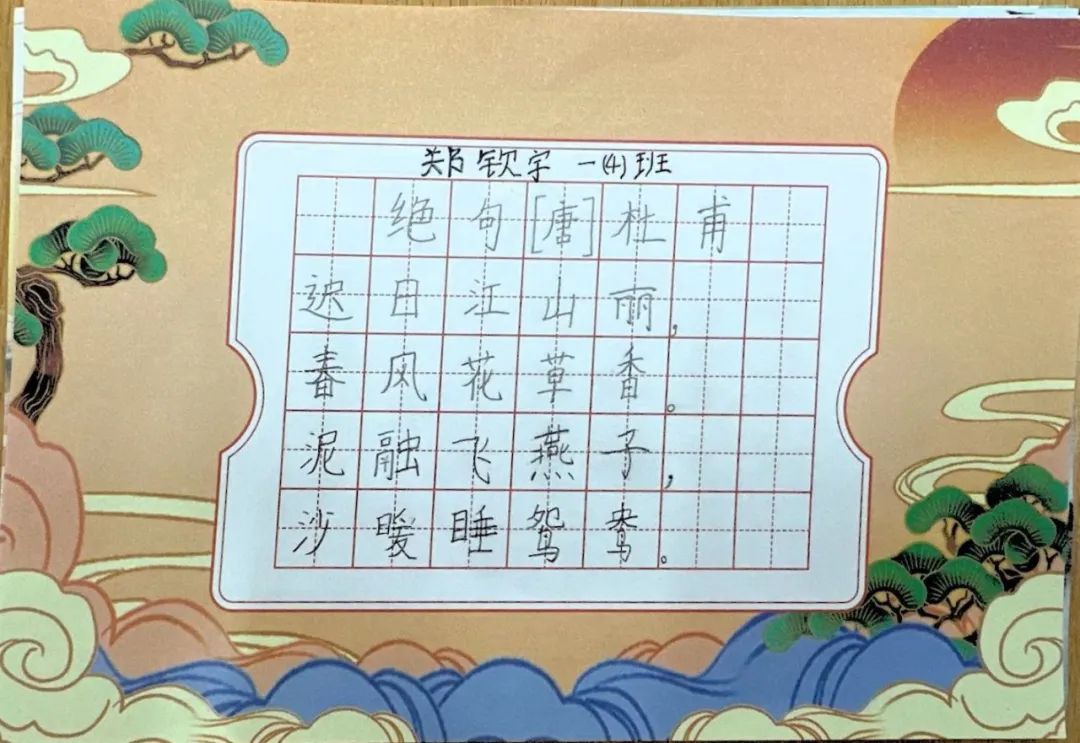 郑钦宇 一(4)班
绝句[唐]杜甫
迟日江山丽，
春风花草香。
泥融飞燕子，
沙暖睡鸳鸯。